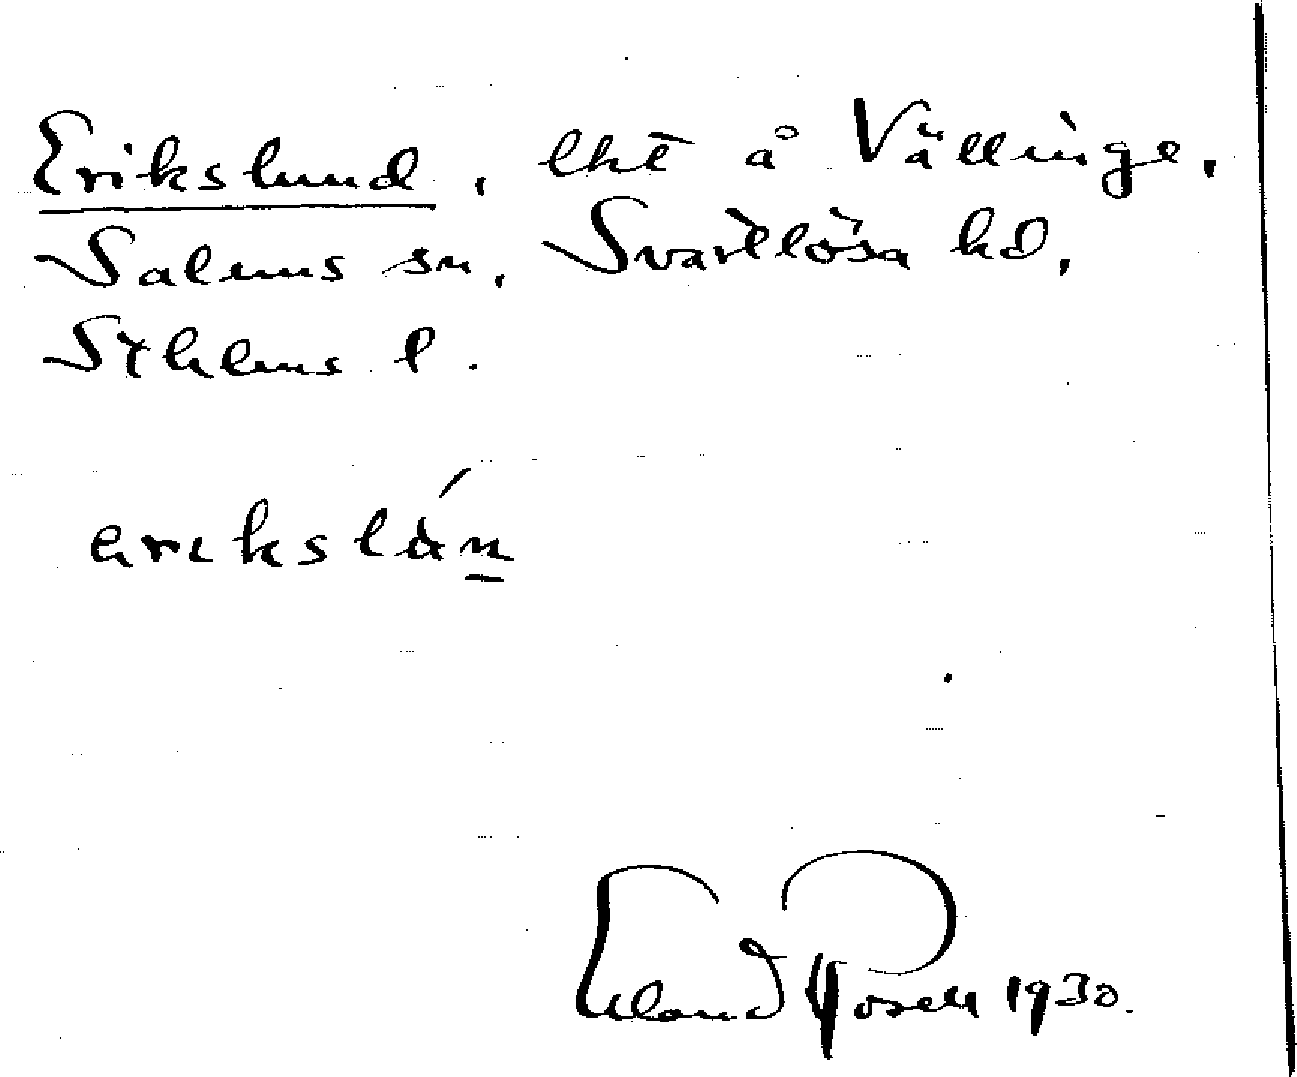 Erikslund, lht å Vällinge,
Salems sn, Svartlösa hd,
Sthlms l.
Erland Rosell 1930.